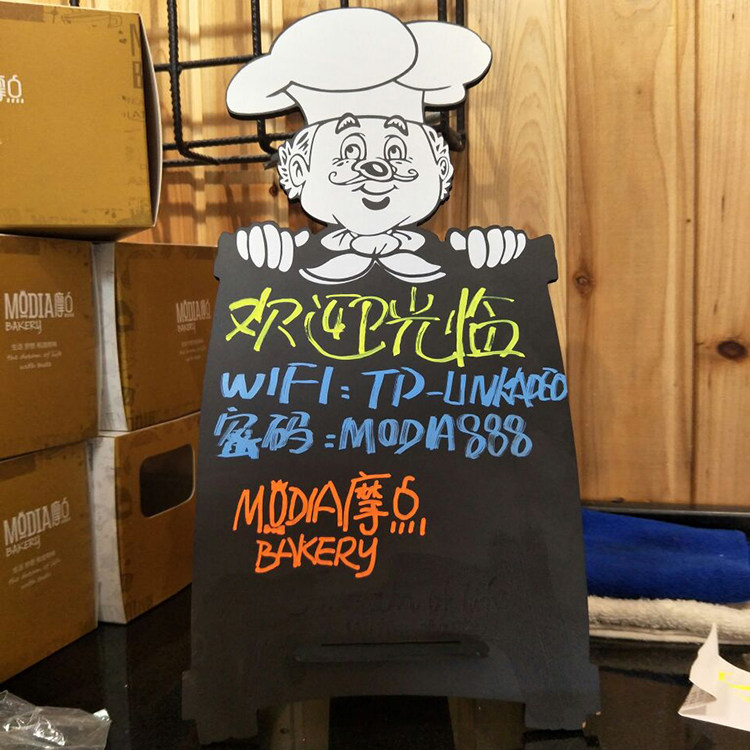 欢迎光临
WIFI:TP-LINKADED
密码:MODIA888
MODIA摩点
BAKERY
MODIA摩点
BAKERY
MODIA摩点
BAKERY